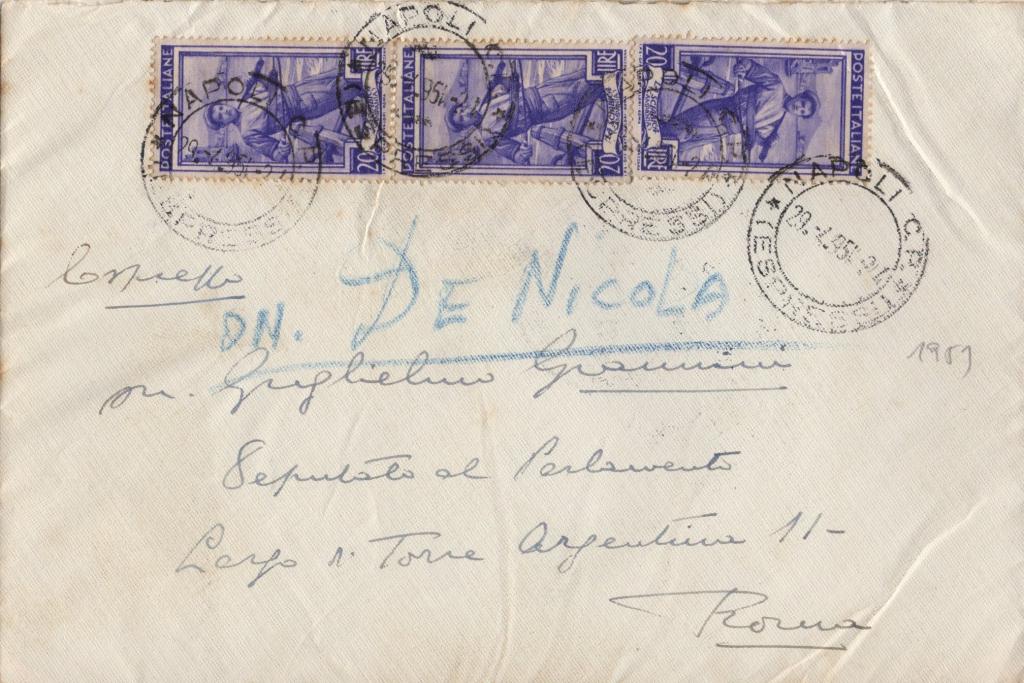 POSTE ITALIANE LIRE 20
POSTE ITALIANE LIRE 20
POSTE ITALIANE LIRE 20
NAPOLI C.P.
(ESPRESSI)
NAPOLI C.P.
(ESPRESSI)
NAPOLI C.P.
(ESPRESSI)
NAPOLI C.P.
(ESPRESSI)
Espresso
ON. DE NICOLA
1951
on. Guglielmo Giannini
Deputato al Parlamento
Largo di Torre Argentina 11-
Roma